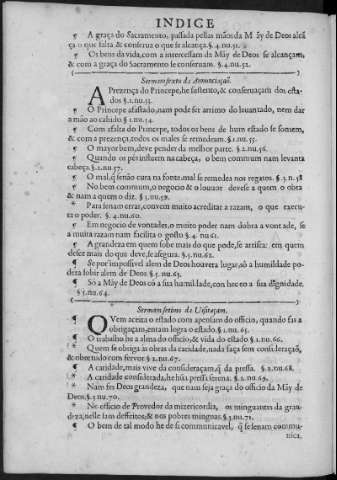 INDICE
¶ A graça do Sacramento, passada pellas mãos da Mãy de Deos alcã
ça o que falta & conserua o que se alcança. §. 4. nu. 51.
¶ Os bens da vida, com a intercessam da Mãy de Deos se alcançam,
& com a graça do Sacramento se conseruam. §. 4. nu. 52.
Sermam sexto da Annunciaçaõ.
A Prezença do Principe, he sustento, & conseruaçaõ dos esta-
dos §. 1. nu. 53.
¶ O Principe afastado, nam pode ser arrimo do leuantado, nem dar
a mão ao cahido. §. 1. nu. 54.
¶ Com a falta do Principe, todos os bens de hum estado se somem,
& com a prezença, todos os males se remedeam. §. 1. nu. 55.
¶ O mayor bem, deve pender da melhor parte. §. 2. nu. 56.
¶ Quando os pés insistem na cabeça, o bem commum nam levanta
cabeça. §. 2. nu. 57.
¶ O mal, q̃ se não cura na fonte, mal se remedea nos regatos. §. 3. n. 58
¶ No bem commum, o negocio & o louuor deve se a quem o obra
& nam a quem o diz. §. 3. nu. 59.
* Para se nam errar, convem muito acreditar a razam, o que execu-
ta o poder. §. 4. nu. 60.
¶ Em negocio de vontades, o muito poder nam dobra a vontade, se
a muita razam nam facilita o gosto §. 4. nu. 61.
¶ A grandeza em quem sobe mais do que pode, se arrisca: em quem
desce mais do que deve, se asegura. §. 5. nu. 62.
¶ Se por impossivel alem de Deos houvera lugar, só a humildade po-
dera sobir alem de Deos. §. 5. nu. 63.
¶ Só a Mãy de Deos cõ a sua humildade, conheceo a sua dignidade.
§. 5. nu. 64.
Sermam setimo da Visitaçam.
QVem aceita o estado com a pensam do officio, quando falta a
obrigaçam, em tam logra o estado. §. 1. nu. 65.
¶ O trabalho he a alma do officio, & vida do estado §. 1. nu. 66.
* Quem se obriga ás obras da caridade, nada faça sem consideraçaõ,
& obre tudo com fervor §. 2. nu. 67.
¶ A caridade, mais vive da consideraçam, q̃ da pressa. §. 2. nu. 68.
* A caridade considerada, he hũa pressa serena. §. 2. nu. 69.
* Nam sey Deos grandeza, que nam seja graça do officio da Mãy de
Deos. §. 3 nu. 70.
* No officio de Provedor da misericordia, os minguantes da gran-
deza, nelle sam deffeitos, & nos pobres minguas. §. 3. nu. 71.
¶ O bem de tal modo he de si communicavel, q̃ se senam commu-
nica.